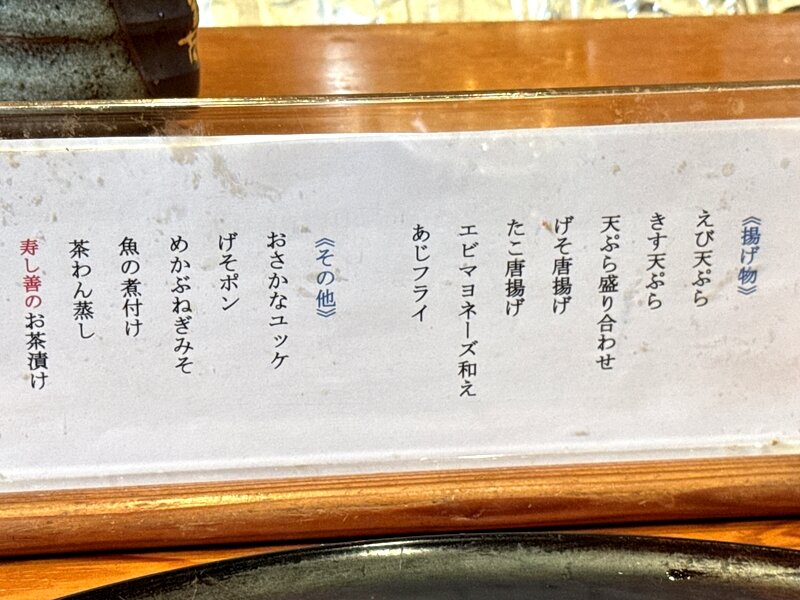 《揚げ物》
えび天ぷら
きす天ぷら
天ぷら盛り合わせ
げそ唐揚げ
たこ唐揚げ
エビマヨネーズ和え
あじフライ
《その他》
おさかなユッケ
げそポン
めかぶねぎみそ
魚の煮付け
茶わん蒸し
寿し善のお茶漬け